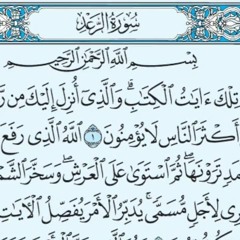 سُورَةُ الرَّعْدِ
بِسْمِ اللَّهِ الرَّحْمَٰنِ الرَّحِيمِ
تِلْكَ ءَايَٰتُ الْكِتَٰبِ ۗ وَالَّذِىٓ أُنزِلَ إِلَيْكَ مِن رَّ
أَكْثَرَ النَّاسِ لَا يُؤْمِنُونَ ١ اللَّهُ الَّذِى رَفَعَ
عَمَدٍ تَرَوْنَهَا ۖ ثُمَّ اسْتَوَىٰ عَلَى الْعَرْشِ ۖ وَسَخَّرَ الشَّمْ
رِى لِأَجَلٍ مُّسَمًّى ۚ يُدَبِّرُ الْأَمْرَ يُفَصِّلُ الْءَايَٰتِ